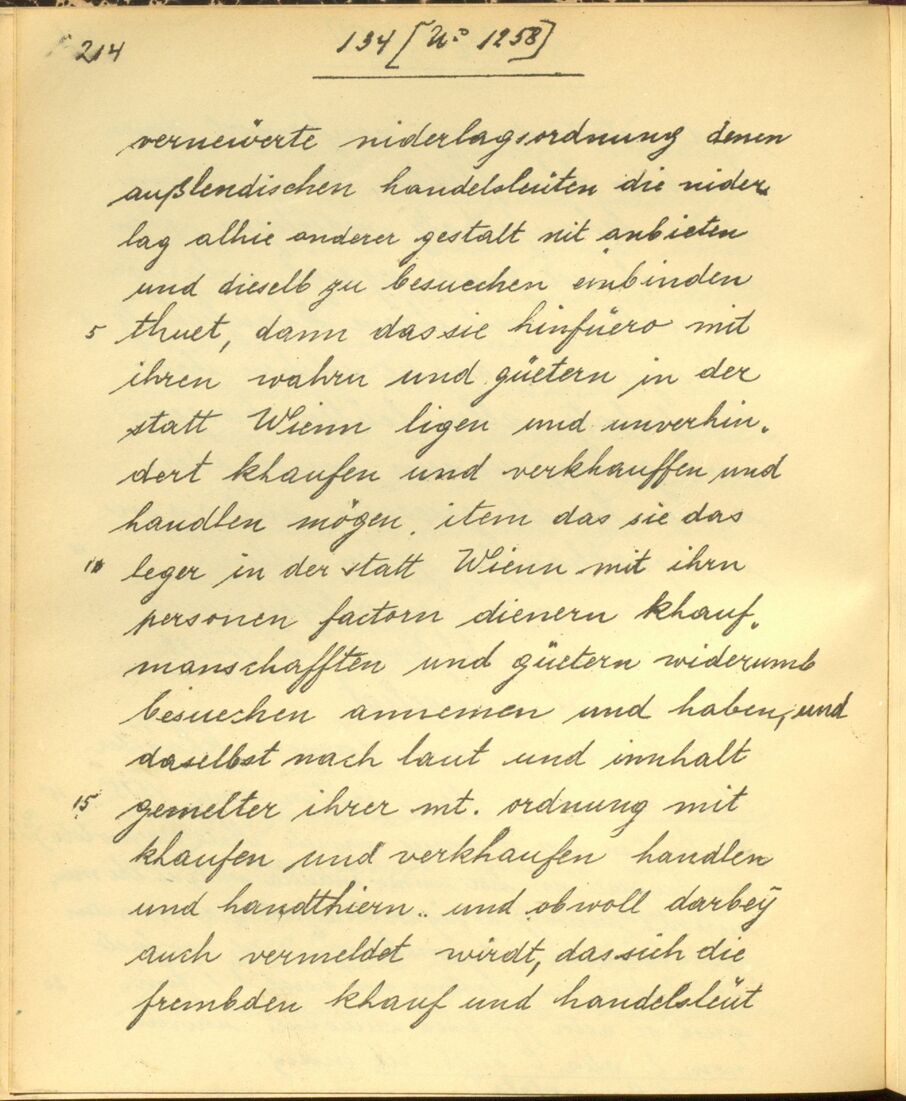 214
134 [No 1258]
verneüerte niderlagsordnung denen
außlendischen handelsleüten die nider„
lag alhie anderer gestalt nit anbieten
und dieselb zu besuechen einbinden
5 thuet, dann das sie hinfüero mit
ihren wahrn und güetern in der
statt Wienn ligen und unverhin„
dert khaufen und verkhauffen und
handlen mögen, item das sie das
10 leger in der statt Wienn mit ihrn
personen factorn dienern khauf„
manschafften und güetern widerumb
besuechen annemen und haben, und
daselbst nach laut und innhalt
15 gemelter ihrer mt. ordnung mit
khaufen und verkhaufen handlen
und handthiern.. und obwoll darbeÿ
auch vermeldet wirdt, das sich die
frembden khauf und handelsleüt